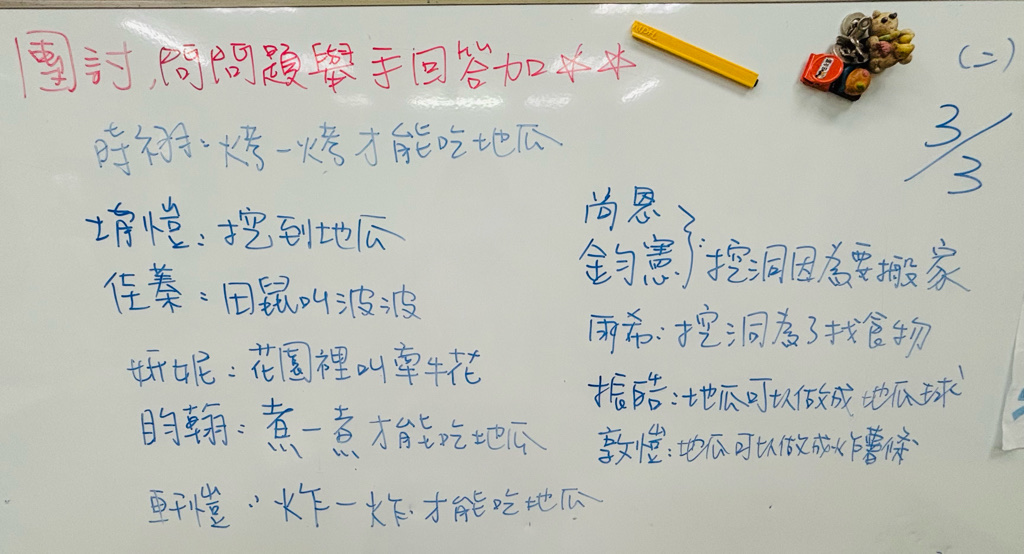 團討,問問題舉手回答加☆☆
(二)
3/3
時翊:烤一烤才能吃地瓜
堉愷:挖到地瓜
佳蓁:田鼠叫波波
妍妮:花園裡叫牽牛花
昀翰:煮一煮才能吃地瓜
軒愷:炸一炸才能吃地瓜
尚恩
鈞憲}:挖洞因為要搬家
雨希:挖洞為了找食物
振皓:地瓜可以做成地瓜球
敦愷:地瓜可以做成炸薯條